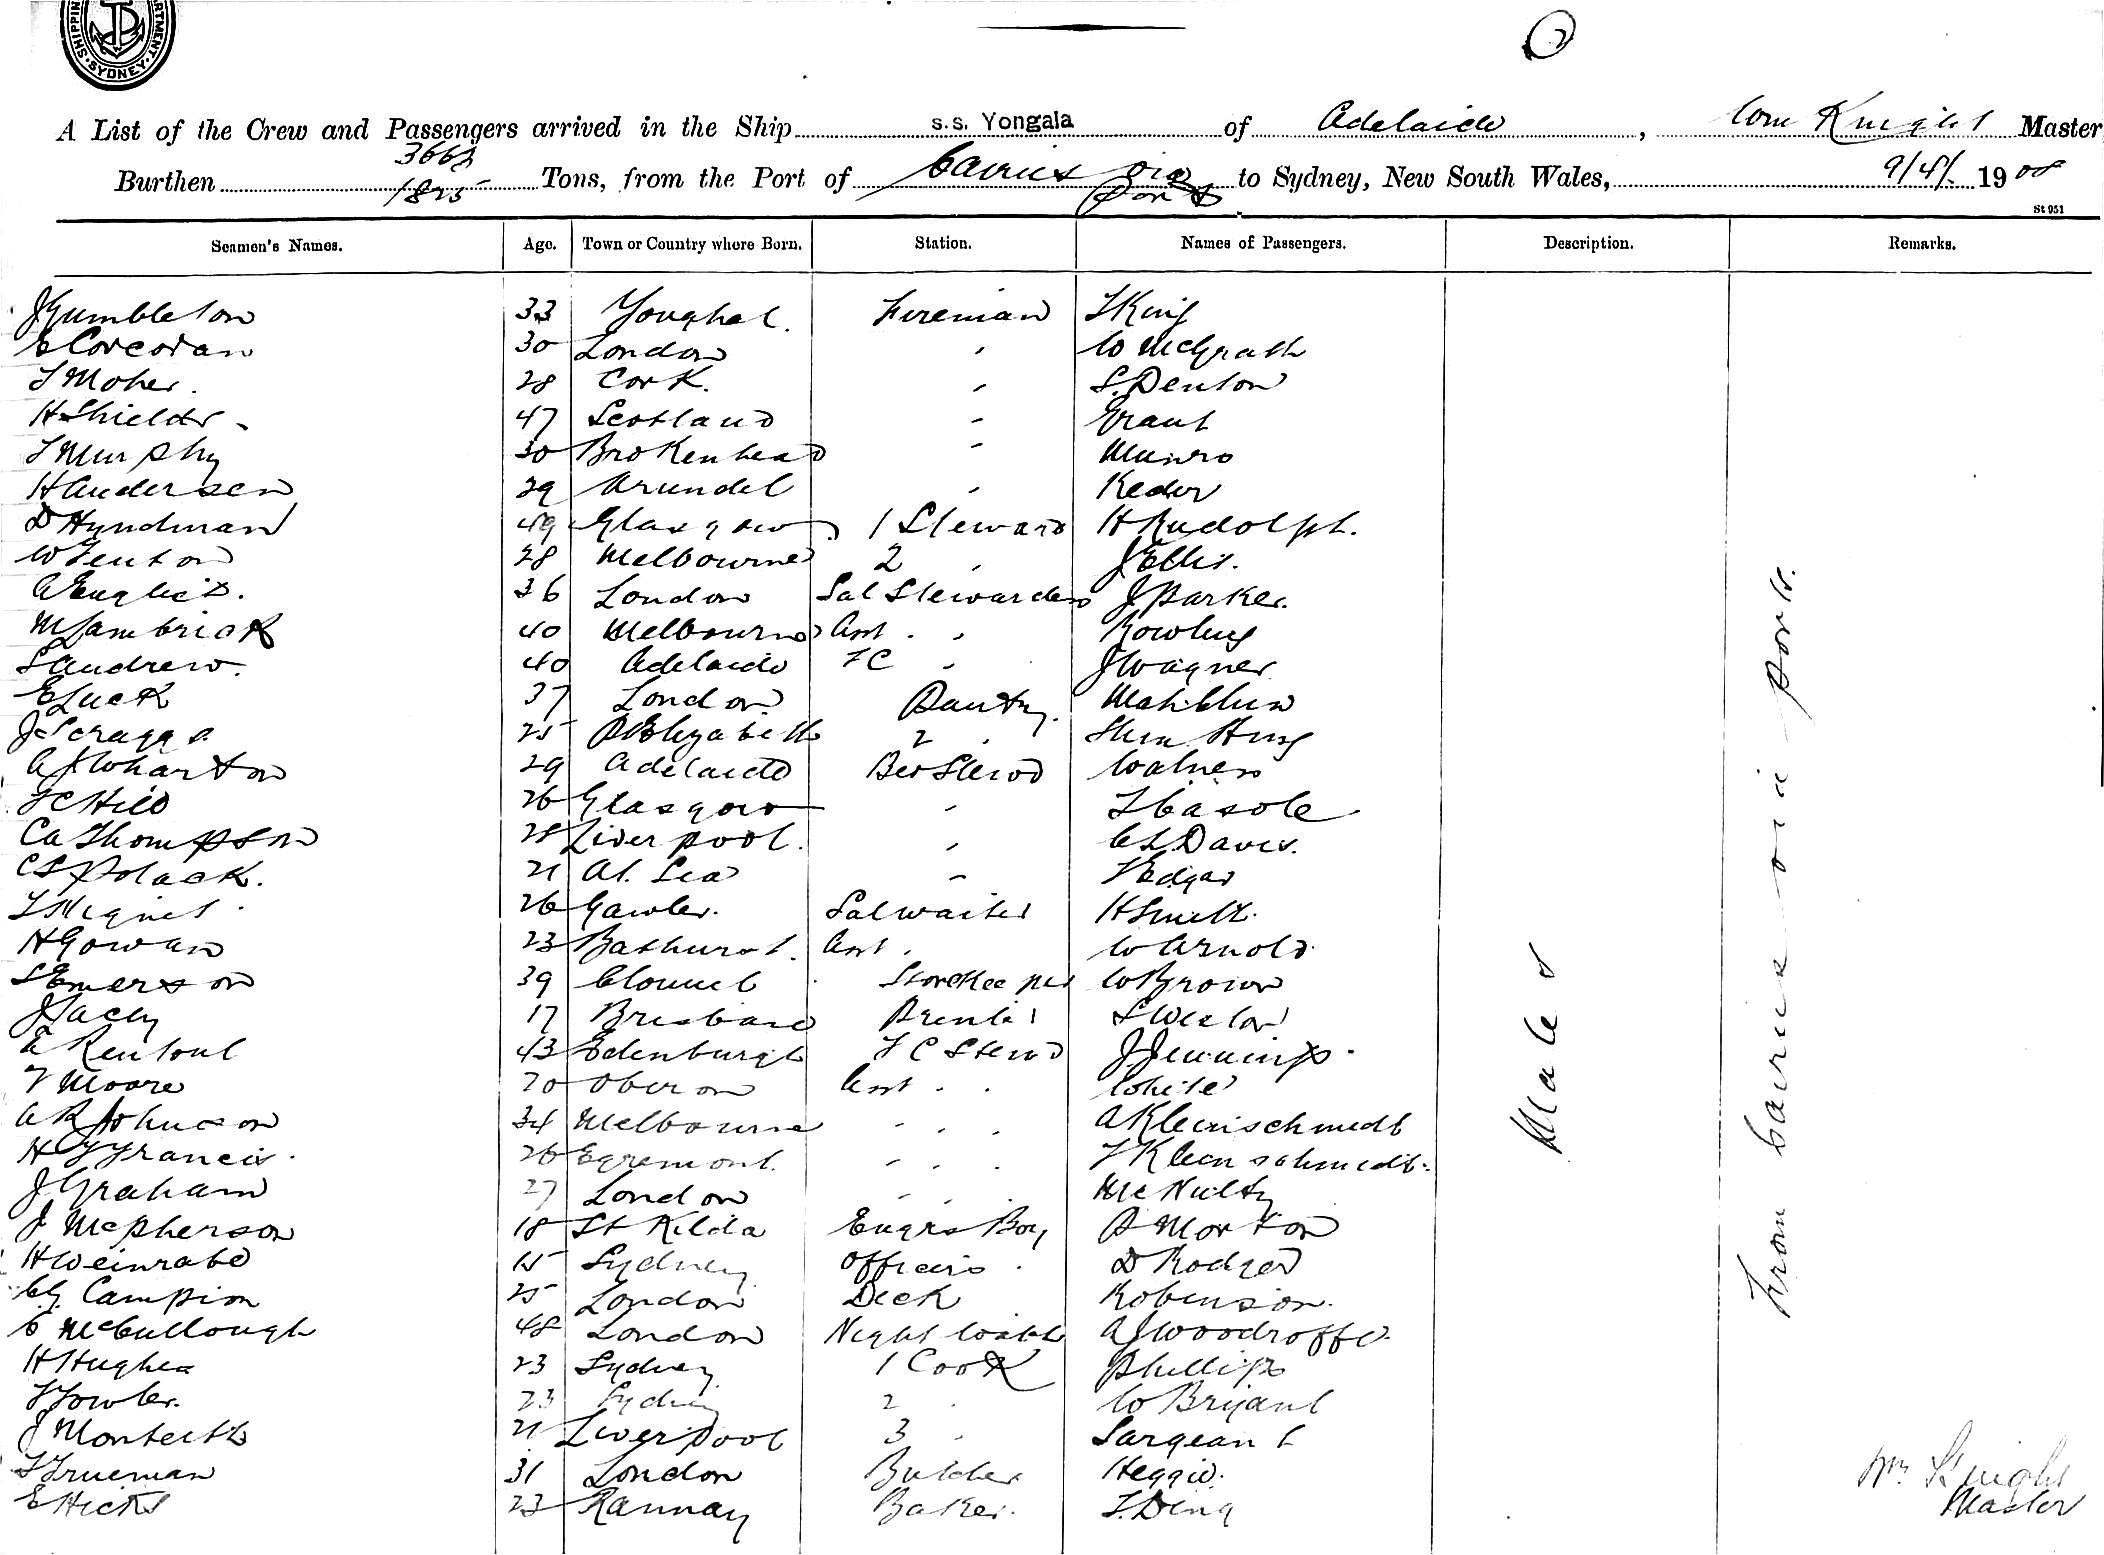 SHIPPING DEPARTMENT. SYDNEY.
2
A List of the Crew and Passengers arrived in the Ship s.s. Yongala of Adelaide, Wm Knight Master
Burthen 3663 1825 Tons, from the Port of Cairns via Ports to Sydney, New South Wales, 9/4/ 1908
St 951
Seamen's Names. Age. Town or Country where Born. Station. Names of Passengers. Description. Remarks.
J Gumbleton 33 Youghal. Fireman T King
Corcoran 30 London " W McGrath
T Moher. 28 Cork. " S. Denton
H Shields 47 Scotland " Grant
T Murphy 30 Brokenhead " Munro
H Andersen 29 Arundel "
D Hyndman 49 Glasgow 1 Steward H Rudolph.
W Fenton 28 Melbourne 2 " J Ellis.
A English. 36 London Sal Stewardess J Parker.
M Lambrick 40 Melbourne Asst. " Rowling
S Andrew. 40 Adelaide FC " J Wagner
E Luck 37 London Pantry.
J Scraggs 25 P Elizabeth 2 "
A J Wharton 29 Adelaide Bed Stewd
Hill 26 Glasgow "
C A Thompson 28 Liverpool. " C L Davis.
C S Polack. 21 At Sea " Edgar
26 Gawler. Sal waiter H Smith.
H Gowan 23 Bathurst. Asst. W Arnold
S Emerson 39 Clonmel Storekeeper W Brown
J Lacey 17 Brisbane Printer
Rentoul 43 Edenburgh F C Stewd J Jennings.
F Moore 20 Oberon Asst. " White
A R Johnson 34 Melbourne " " " A Kleinschmidt
H F Francis. 26 Egremont. " " " F Kleinschmidt.
J Graham 27 London " " " McNulty
J McPherson 18 St Kilda Engrs Boy P Morton
H Weinrabe 15 Sydney Officers " D Rodger
C G Campion 25 London Deck Robinson.
C McCullough 48 London Night watch A J Woodroffe.
H Hughes 23 Sydney 1 Cook Phillips
F Fowler. 23 Sydney 2 " W Bryant
J Monteith 21 Liverpool 3 " Sargeant
T Trueman 31 London Butcher Heggie.
E Hicks 23 Rannay Baker.
Males
From Cairns via ports.
Wm Knight
Master